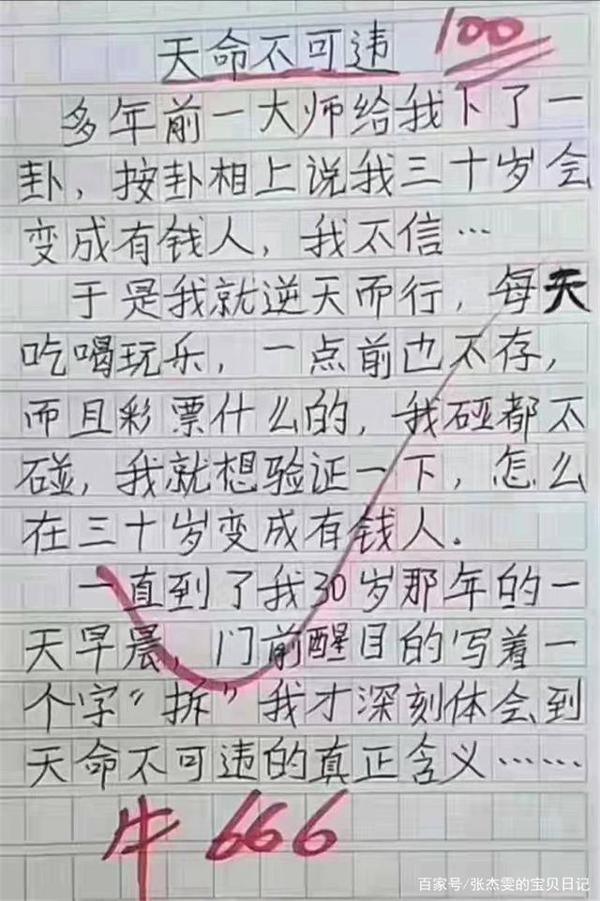 天命不可违
100
多年前一大师给我下了一
卦，按卦相上说我三十岁会
变成有钱人，我不信…
于是我就逆天而行，每天
吃喝玩乐，一点前也不存，
而且彩票什么的，我碰都不
碰，我就想验证一下，怎么
在三十岁变成有钱人。
一直到了我30岁那年的一
天早晨，门前醒目的写着一
个字“拆”我才深刻体会到
天命不可违的真正含义……
牛 666
百家号/张杰雯的宝贝日记